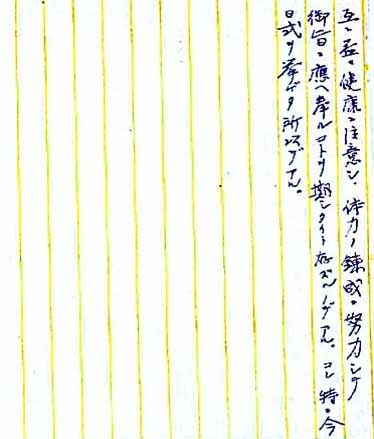 互ニ益々健康ニ注意シ、体力ノ錬成ニ努力シテ
御旨ニ應ヘ奉ルコトヲ期シタイト存ズルノデアル。コレ特ニ今
日式ヲ挙ゲタ所以デアル。